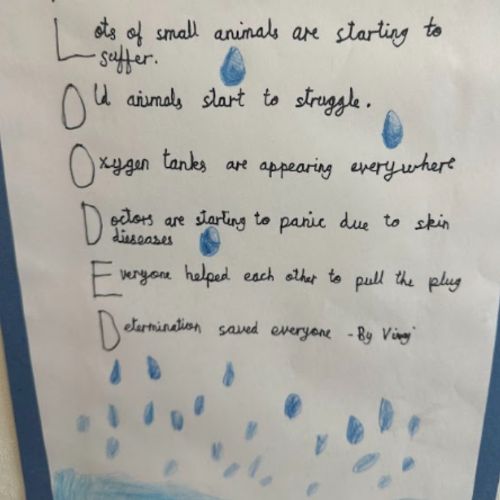 Lots of small animals are starting to
suffer.
Old animals start to struggle.
Oxygen tanks are appearing everywhere
Doctors are starting to panic due to skin
diseases
Everyone helped each other to pull the plug
Determination saved everyone - By